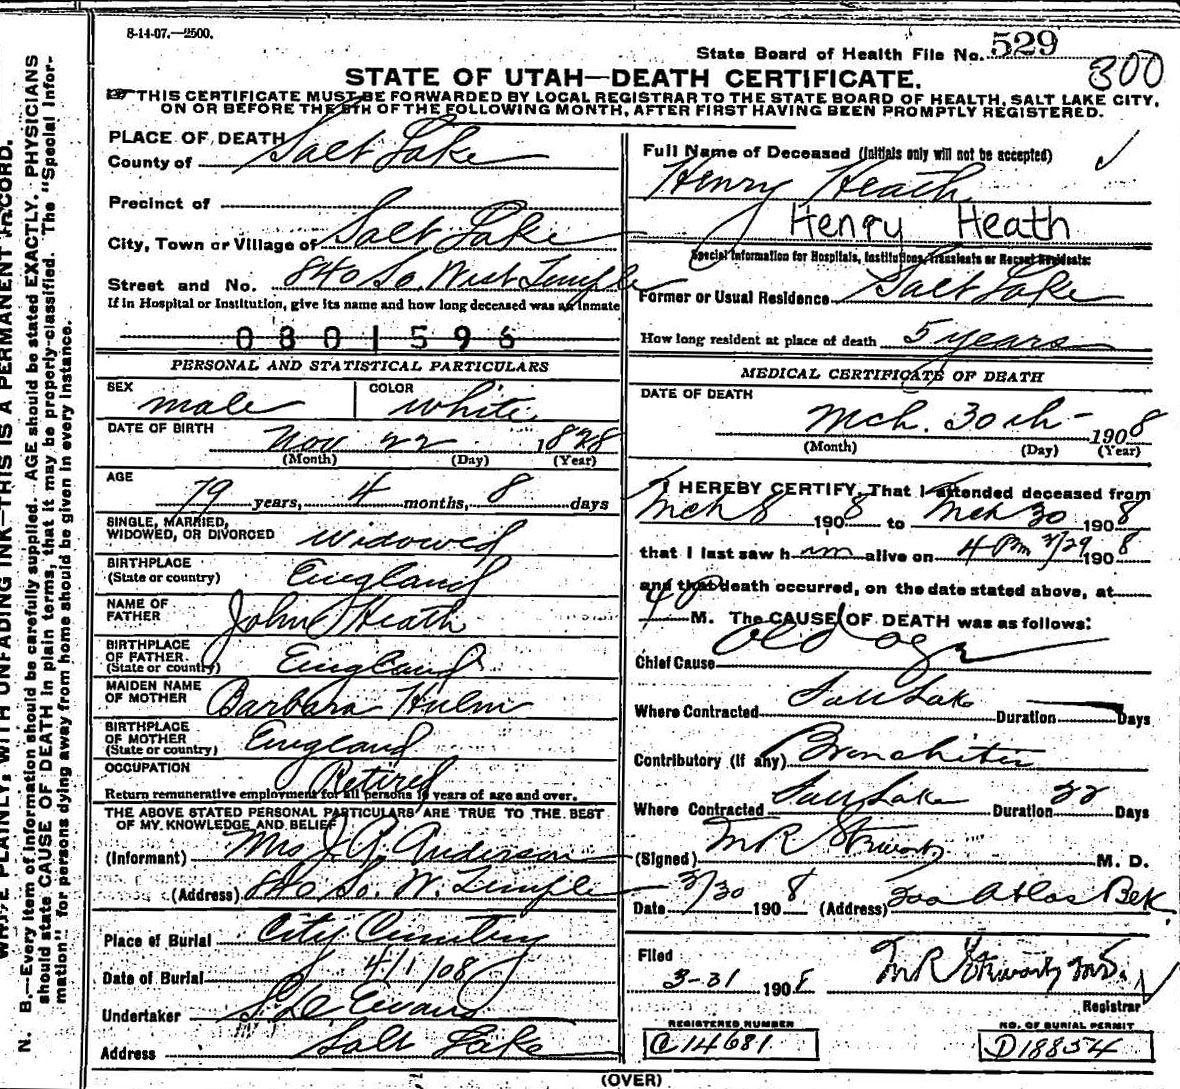 8-14-07.—2500.
State Board of Health File No. 529
300
STATE OF UTAH—DEATH CERTIFICATE.
THIS CERTIFICATE MUST BE FORWARDED BY LOCAL REGISTRAR TO THE STATE BOARD OF HEALTH, SALT LAKE CITY,
ON OR BEFORE THE 5TH OF THE FOLLOWING MONTH, AFTER FIRST HAVING BEEN PROMPTLY REGISTERED.
PLACE OF DEATH
County of Salt Lake
Precinct of
City, Town or Village of Salt Lake
Street and No. 840 So. West Temple
If in Hospital or Institution, give its name and how long deceased was an inmate
0801596
PERSONAL AND STATISTICAL PARTICULARS
SEX male COLOR white
DATE OF BIRTH Nov 22 1828
(Month) (Day) (Year)
AGE 79 years, 4 months, 8 days
SINGLE, MARRIED,
WIDOWED, OR DIVORCED Widowed
BIRTHPLACE
(State or country) England
NAME OF
FATHER John Heath
BIRTHPLACE
OF FATHER
(State or country) England
MAIDEN NAME
OF MOTHER Barbara Hulm
BIRTHPLACE
OF MOTHER
(State or country) England
OCCUPATION Retired
Return remunerative employment for all persons 10 years of age and over.
THE ABOVE STATED PERSONAL PARTICULARS ARE TRUE TO THE BEST
OF MY KNOWLEDGE AND BELIEF
(Informant) Mrs J. A. Anderson
(Address) 840 So. W. Temple
Place of Burial City Cemetery
Date of Burial 4/1/08
Undertaker Evans
Address Salt Lake
Full Name of Deceased (Initials only will not be accepted)
Henry Heath
Henry Heath
Special Information for Hospitals, Institutions, Transients or Recent Residents:
Former or Usual Residence Salt Lake
How long resident at place of death 5 years
MEDICAL CERTIFICATE OF DEATH
DATE OF DEATH
Mch. 30th 1908
(Month) (Day) (Year)
I HEREBY CERTIFY, That I attended deceased from
Mch 8 1908 to Mch 30 1908
that I last saw h im alive on 4 Pm 3/29 1908
and that death occurred, on the date stated above, at
M. The CAUSE OF DEATH was as follows:
Chief Cause old age
Where Contracted Salt Lake Duration Days
Contributory (if any) Bronchitis
Where Contracted Salt Lake Duration 22 Days
(Signed) M R Stewart M. D.
Date 3/30 1908 (Address) 300 Atlas Bek.
Filed
3-31 1908 M R Stewart M.D.
Registrar
REGISTERED NUMBER
C14681
NO. OF BURIAL PERMIT
D18854
(OVER)
N. B.—Every item of information should be carefully supplied. AGE should be stated EXACTLY. PHYSICIANS
should state CAUSE OF DEATH in plain terms, that it may be properly classified. The "Special Infor-
mation" for persons dying away from home should be given in every instance.
WRITE PLAINLY, WITH UNFADING INK—THIS IS A PERMANENT RECORD.